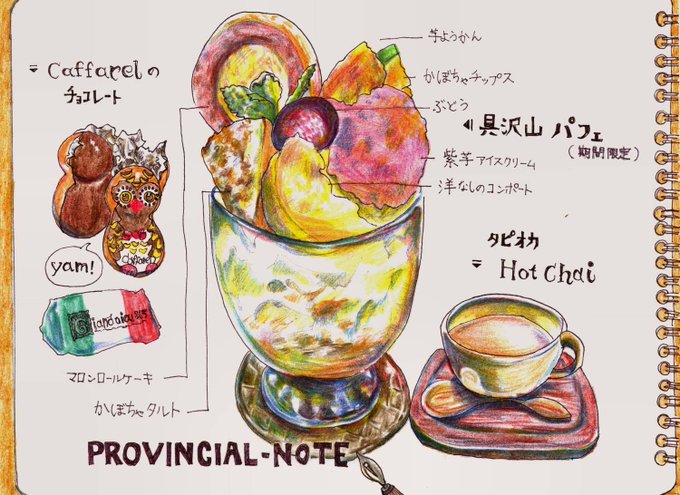 Caffarelの
チョコレート
yam!
芋ようかん
かぼちゃチップス
ぶどう
具沢山 パフェ
(期間限定)
紫芋アイスクリーム
洋なしのコンポート
タピオカ
Hot Chai
マロンロールケーキ
かぼちゃタルト
PROVINCIAL-NOTE